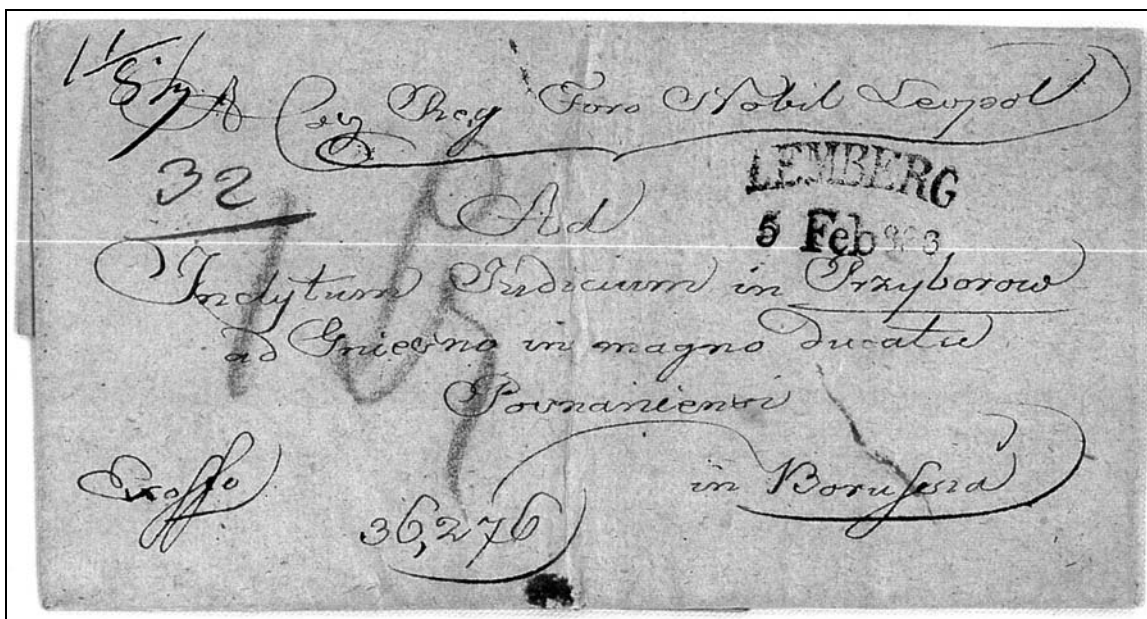 A Caes Reg Foro Nobil Leopol
32
LEMBERG
5 Feb
Ad
Inclytum Judicium in Przyborowo
ad Gniezno in magno Ducatu
Posnaniensi
in Borussia
Exoffo
36,276